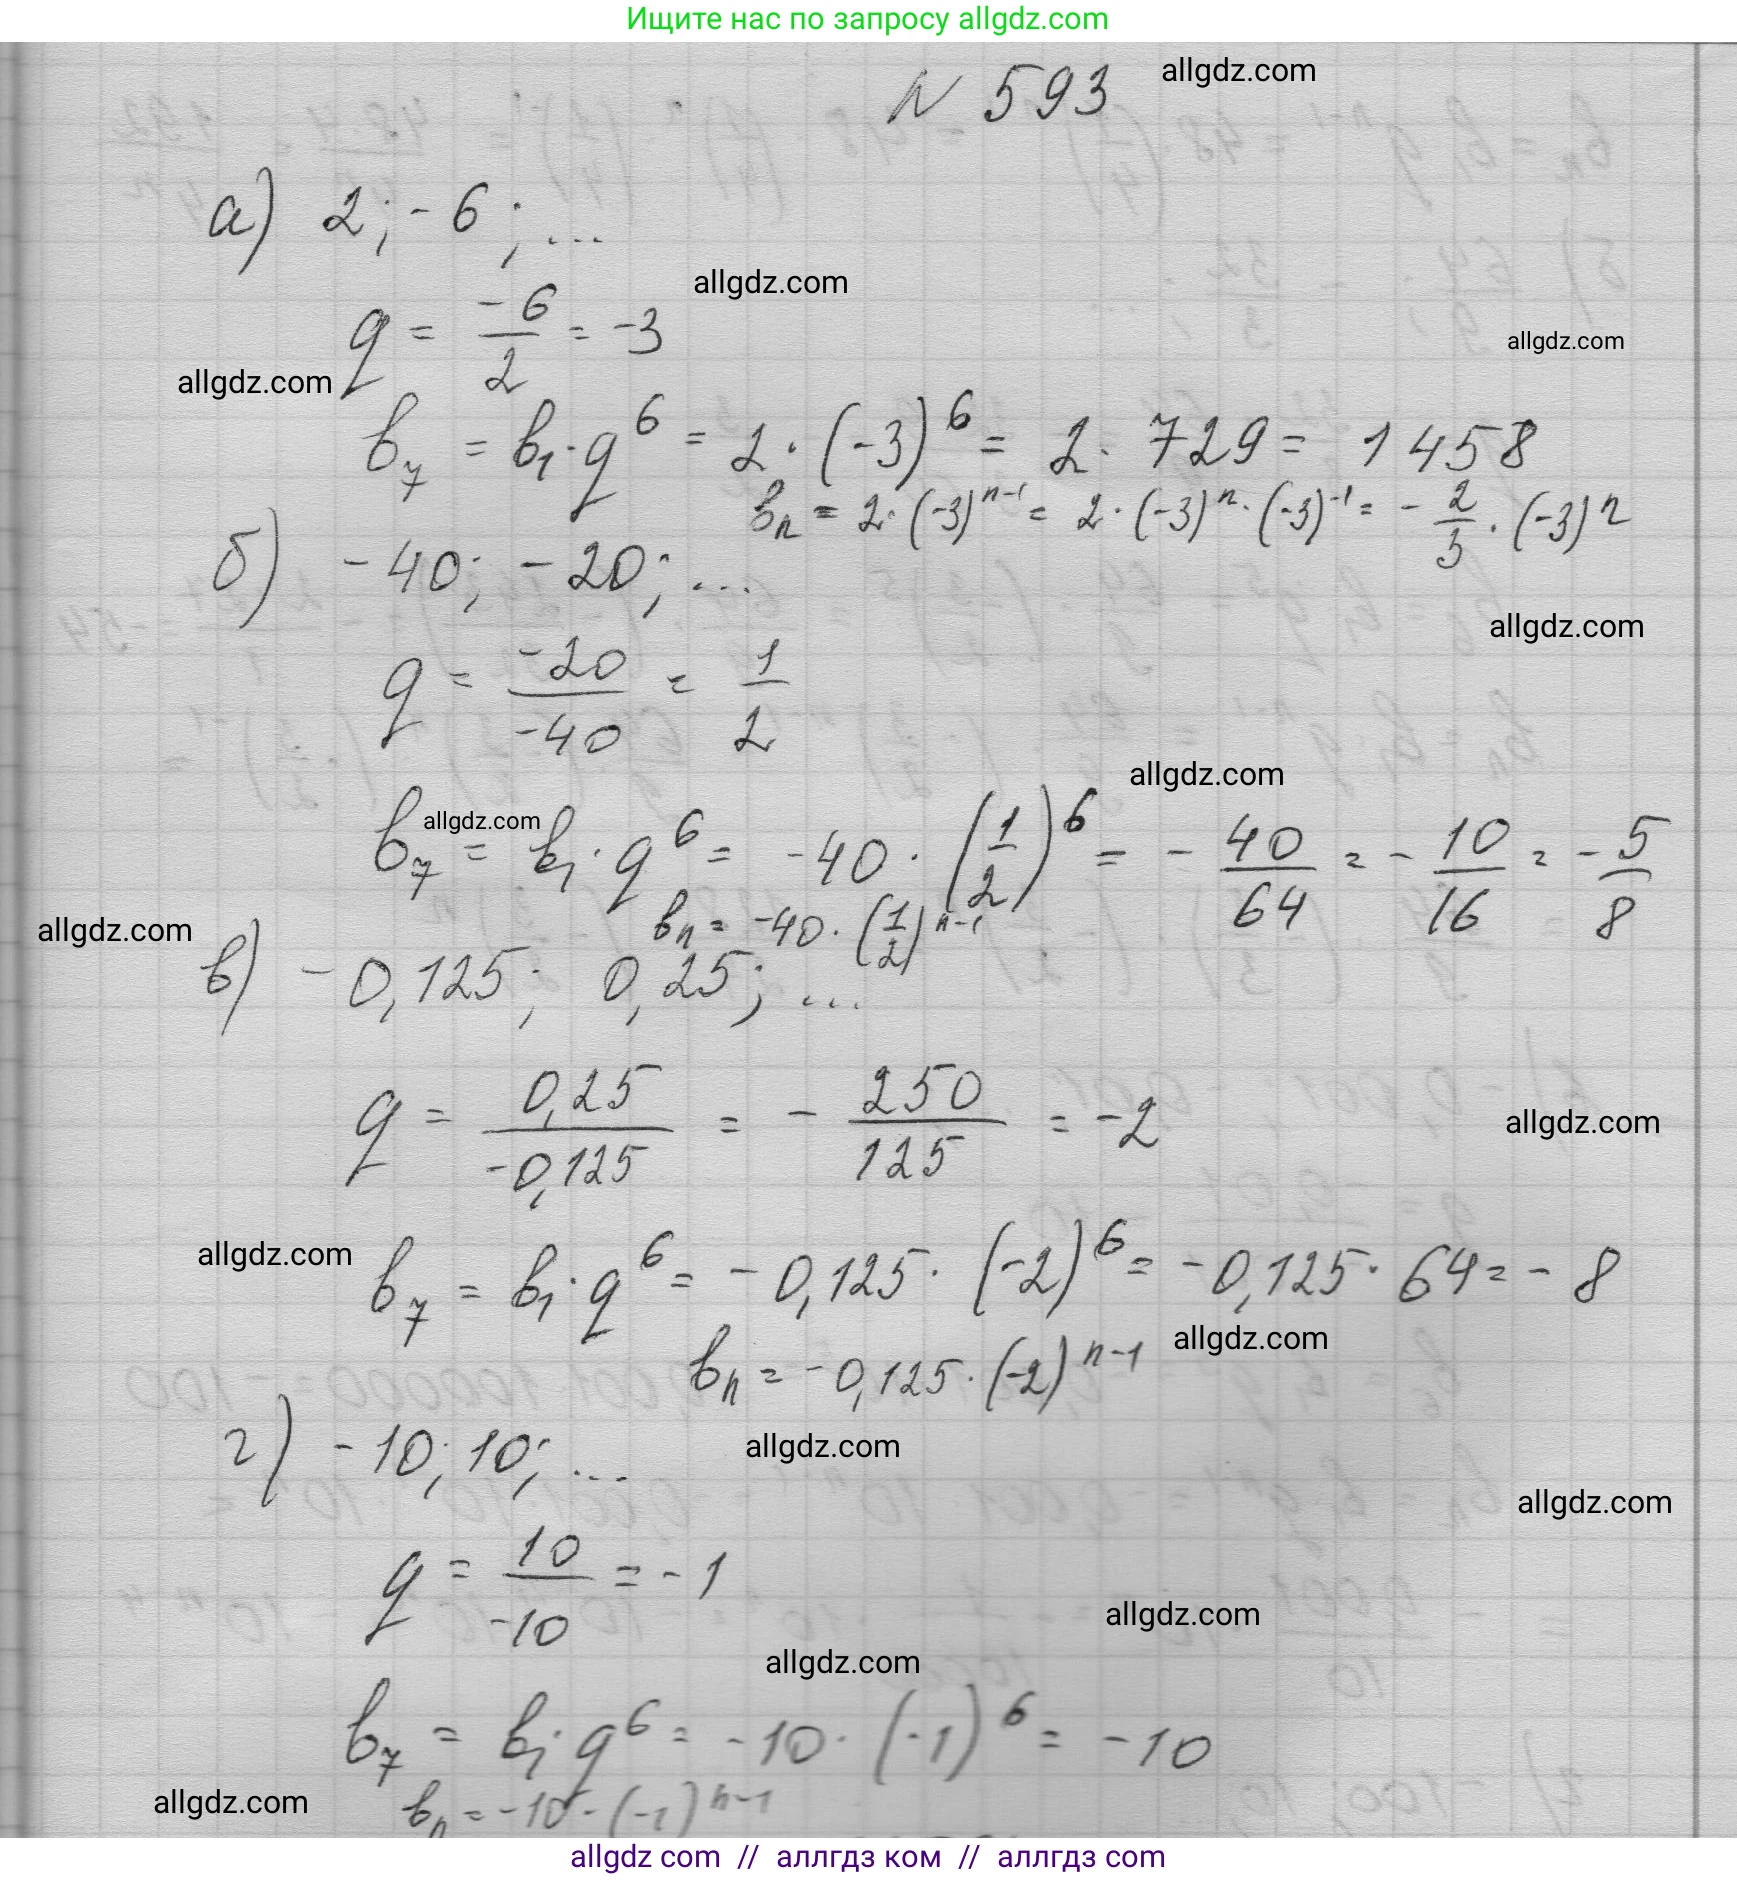 Ищите нас по запросу allgdz.com
№ 593 allgdz.com
а) 2; -6; ...
allgdz.com
q = -6/2 = -3
allgdz.com
allgdz.com
b₇ = b₁·q⁶ = 2·(-3)⁶ = 2·729 = 1458
bₙ = 2·(-3)ⁿ⁻¹ = 2·(-3)ⁿ·(-3)⁻¹ = -2/3·(-3)ⁿ
б) -40; -20; ...
allgdz.com
q = -20/-40 = 1/2
allgdz.com
allgdz.com
b₇ = b₁·q⁶ = -40·(1/2)⁶ = -40/64 = -10/16 = -5/8
bₙ = -40·(1/2)ⁿ⁻¹
allgdz.com
в) -0,125; 0,25; ...
q = 0,25/-0,125 = -250/125 = -2
allgdz.com
allgdz.com
b₇ = b₁·q⁶ = -0,125·(-2)⁶ = -0,125·64 = -8
allgdz.com
bₙ = -0,125·(-2)ⁿ⁻¹
г) -10; 10; ...
allgdz.com
allgdz.com
q = 10/-10 = -1
allgdz.com
allgdz.com
b₇ = b₁·q⁶ = -10·(-1)⁶ = -10
allgdz.com
bₙ = -10·(-1)ⁿ⁻¹
allgdz com // аллгдз ком // аллгдз com